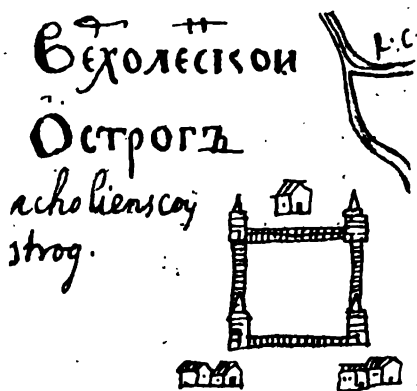 Вехолеской
Острогъ
acholienscoy
strog.